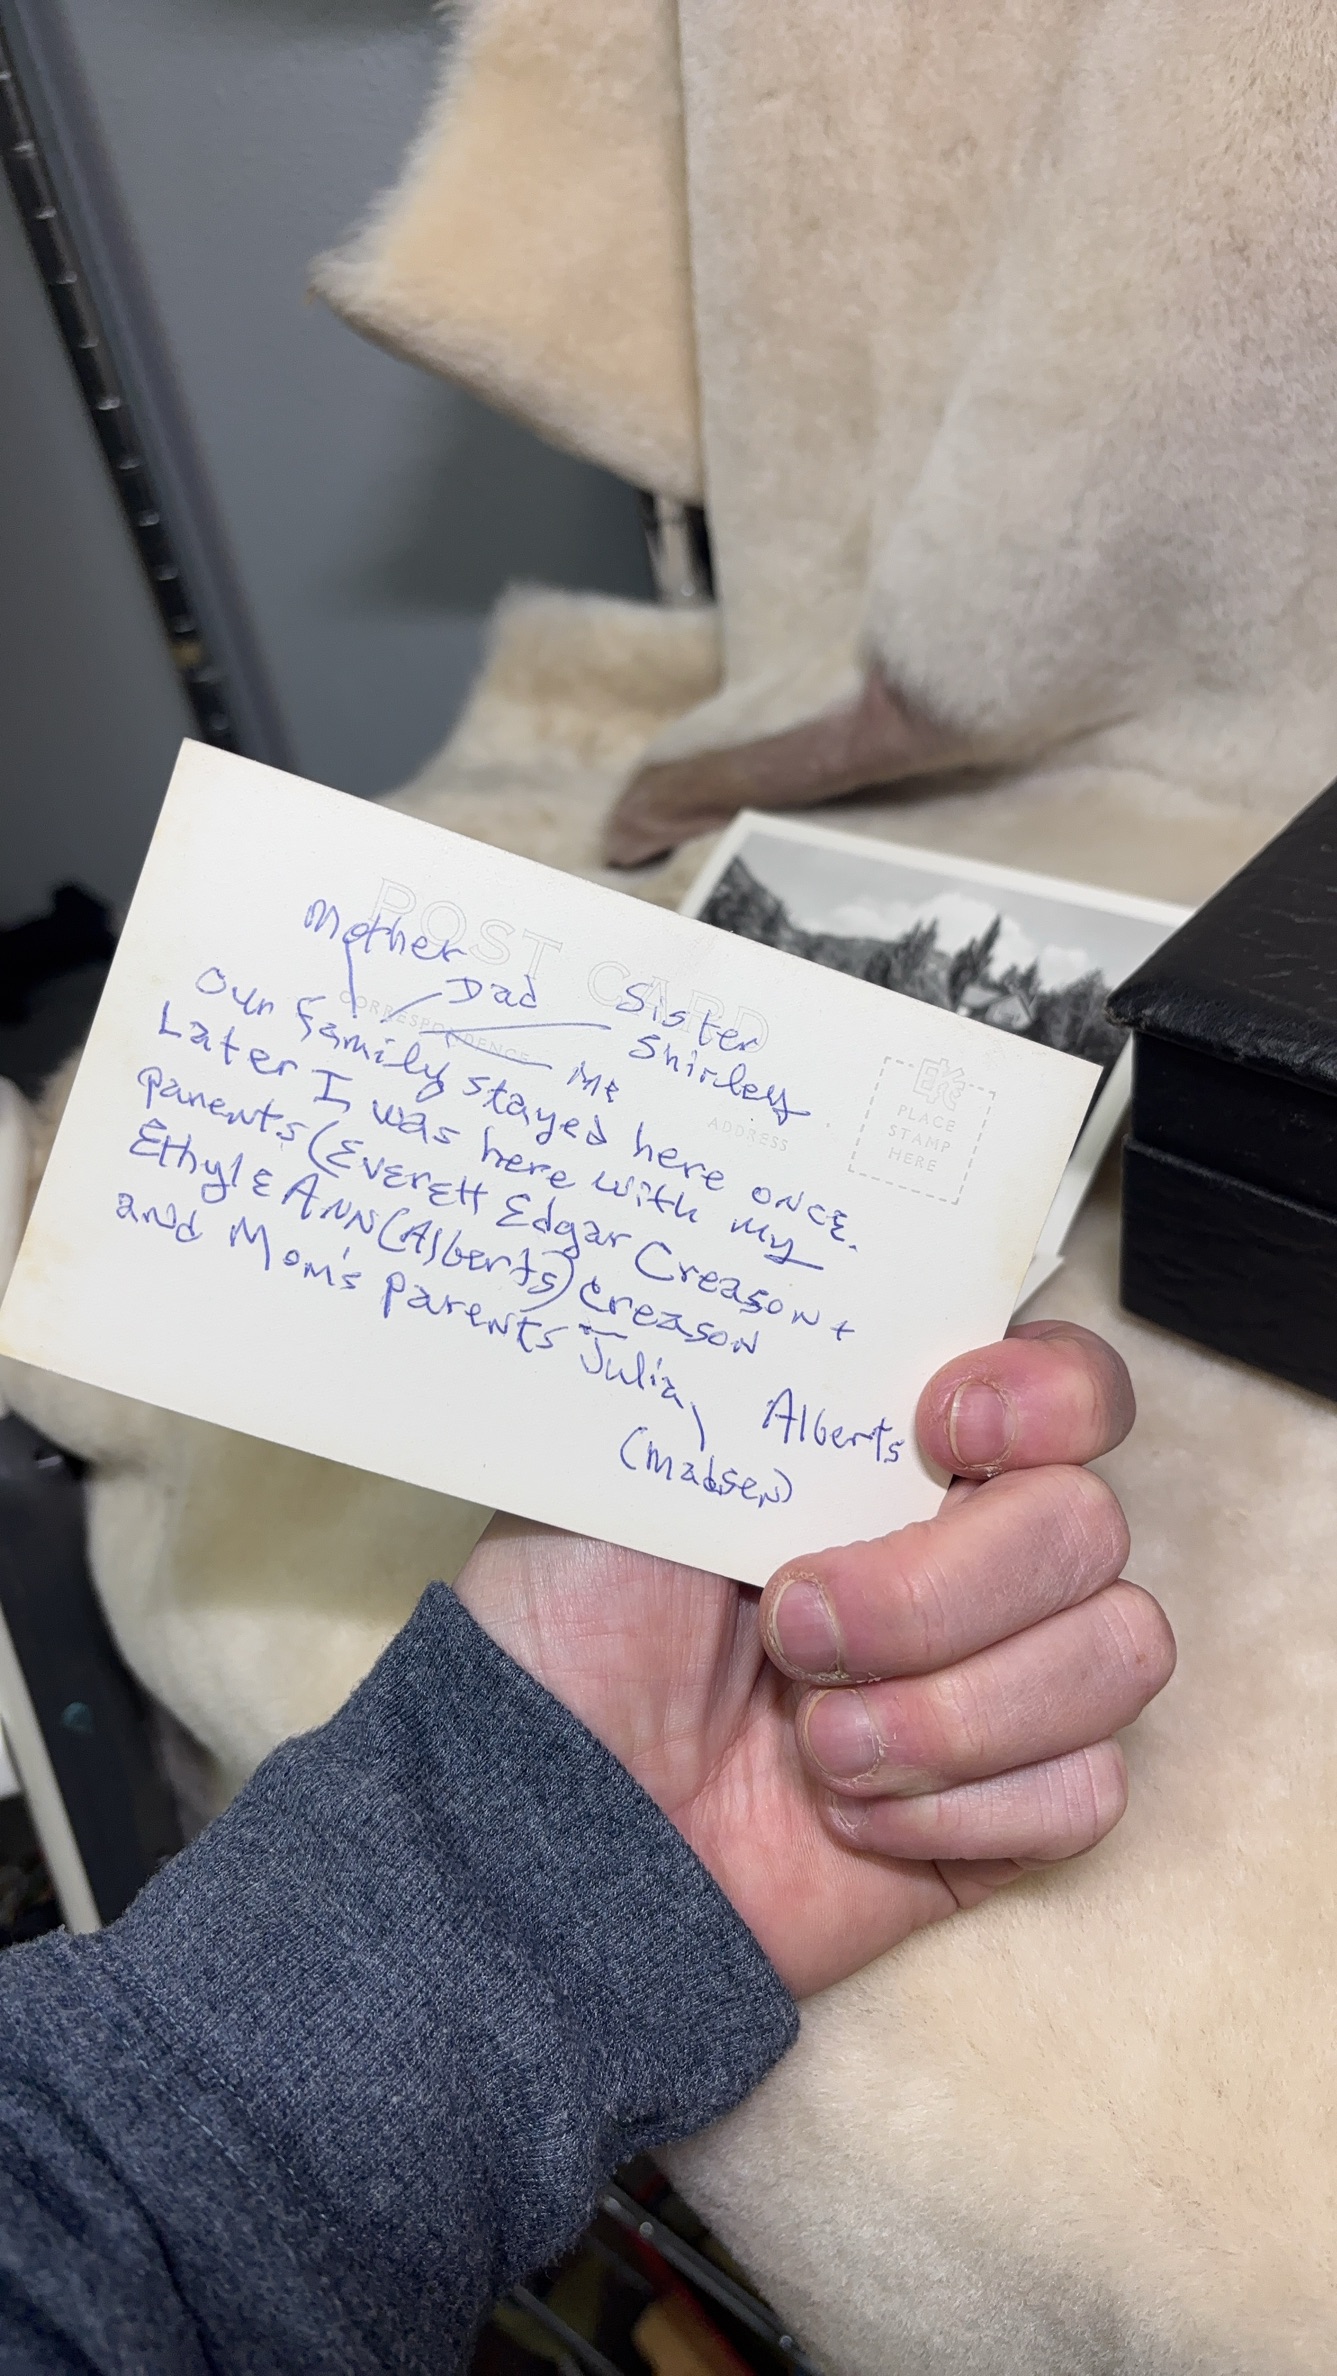 POST CARD
CORRESPONDENCE
ADDRESS
EKC
PLACE
STAMP
HERE
Mother
Dad
Sister
Shirley
Me
Our family stayed here once.
Later I was here with my
parents (Everett Edgar Creason +
Ethyle Ann (Alberts) Creason
and Mom's parents – Julia Alberts
(Madsen)